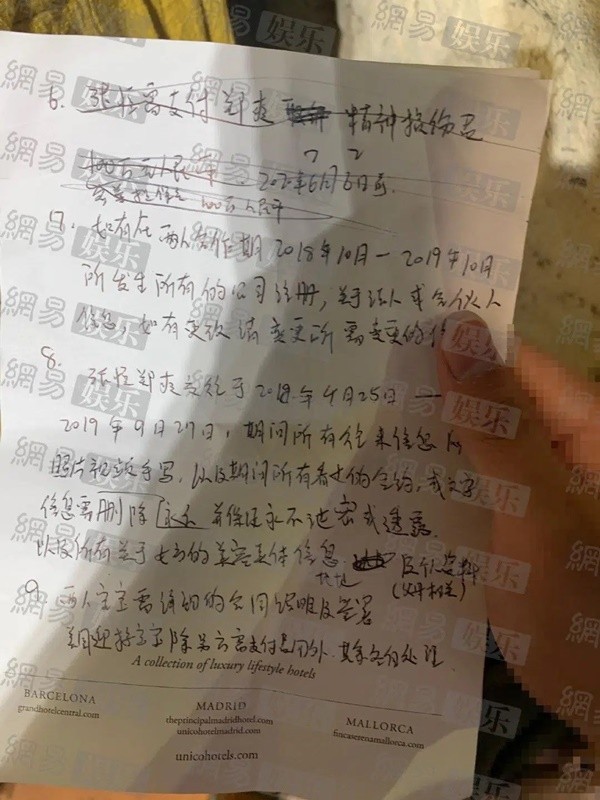 6. 张恒需支付郑爽 精神损伤费
100万元人民币. 2020年6月6日前.
7 2
100万人民币
7. 如有在两人合作期2018年10月一2019年10月
所发生所有的公司注册, 关于法人或合伙人
信息, 如有更改请变更所需变更的
8. 张恒郑爽交往于2018年4月25日 —
2019年9月27日, 期间所有往来信息
照片视频手写, 以及期间所有着的合约, 或文字
信息需删除 永久 并保证永不泄密或透露.
以及所有关于女方的美容身体信息
9. 两人宝宝需详细的合同说明及签署
美国 除 需支付费用外, 其余各自处理.
A collection of luxury lifestyle hotels
BARCELONA
grandhotelcentral.com
MADRID
theprincipalmadridhotel.com
unicohotelmadrid.com
MALLORCA
fincaserenamallorca.com
unicohotels.com
網易娱乐